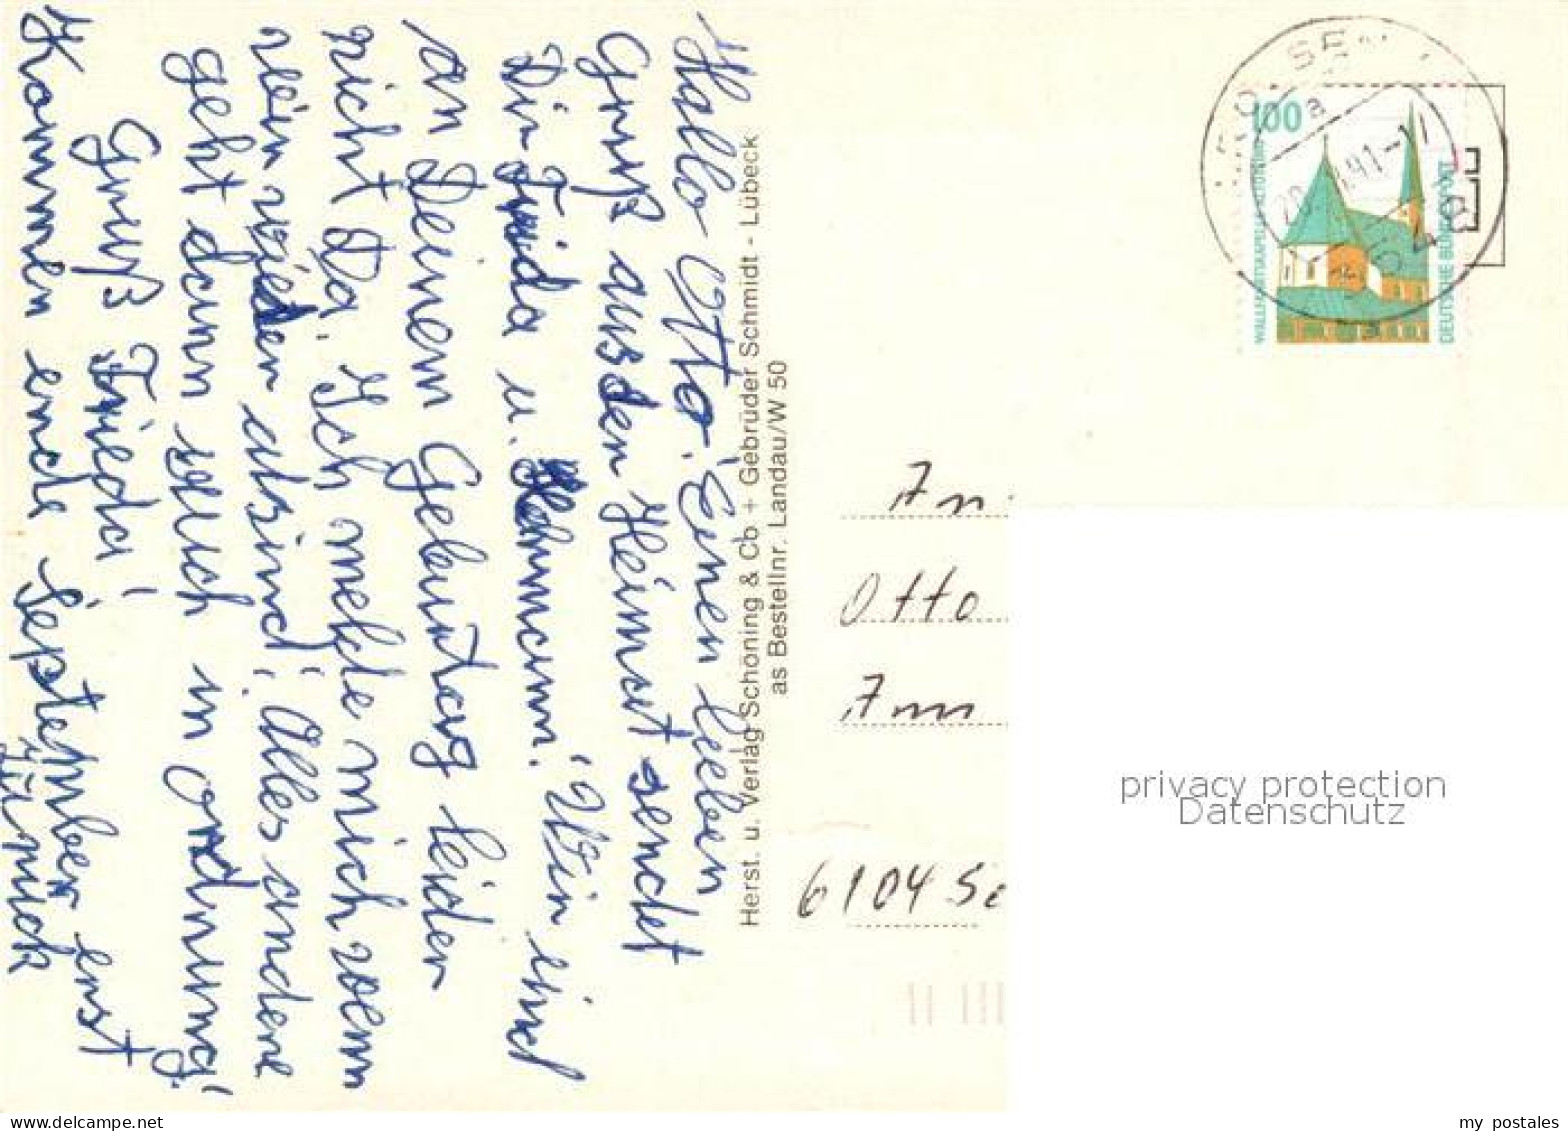 Hallo Otto! Einen lieben
Gruß aus den Heimat sendet
Dir Frida u. Hermann! Wir sind
an Deinem Geburtag leider
nicht Da! Ich melde mich wenn
wir wieder da sind! Alles andere
geht dann auch in ordnung!
Gruß Frieda!
Kommen ende September erst
zürück
Herst. u. Verlag Schöning & Co + Gebrüder Schmidt - Lübeck
as Bestellnr. Landau/W 50
100
WALLFAHRTSKAPELLE ALTÖTTING
DEUTSCHE BUNDESPOST
a
An
Otto
Am
6104 Se
privacy protection
Datenschutz
my postales